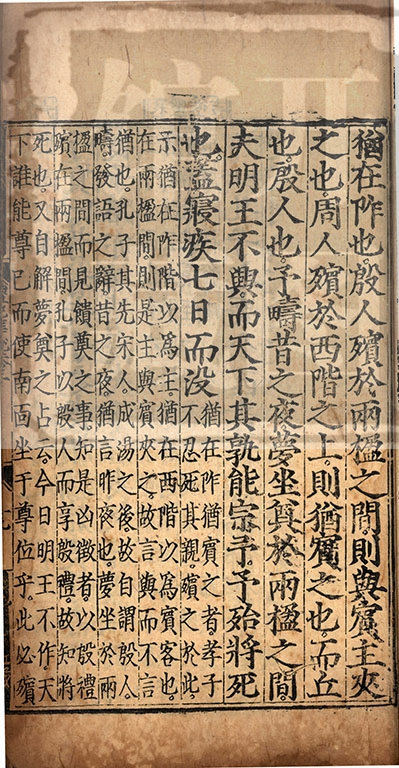 猶在阼也。殷人殯於兩楹之間。則與賓主夾
之也。周人殯於西階之上。則猶賓之也。而丘
也。殷人也。予疇昔之夜。夢坐奠於兩楹之間。
夫明王不興。而天下其孰能宗予。予殆將死
也。蓋寢疾七日而没
猶在阼猶賓之者。孝子
不忍死其親。殯之於此。
示猶在阼階以為主。猶在西階以為賓客也。
在兩楹間。則是主與賓夾之。故言與而不言
猶也。孔子其先宋人。成湯之後。故自謂殷人。
疇。發語之辭。昔之夜。猶言昨夜也。夢坐於兩
楹之間。而見饋奠之事。知是凶徵者。以殷禮
殯在兩楹間。孔子以殷人而享殷禮。故知將
死也。又自解夢奠之占云。今日明王不作。天
下誰能尊已。而使南面坐于尊位乎。此必殯